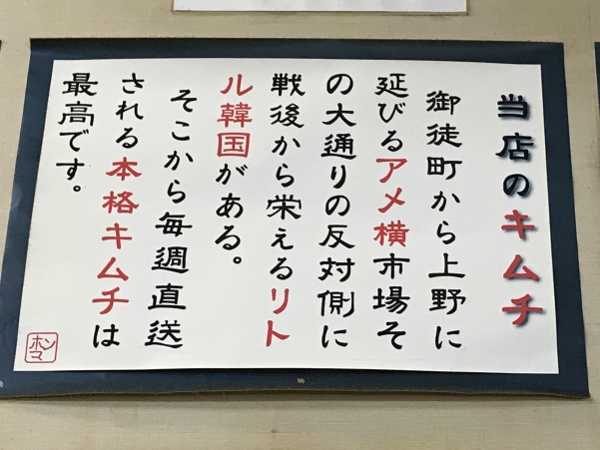 当店のキムチ
御徒町から上野に
延びるアメ横市場そ
の大通りの反対側に
戦後から栄えるリト
ル韓国がある。
そこから毎週直送
される本格キムチは
最高です。
ホンマ